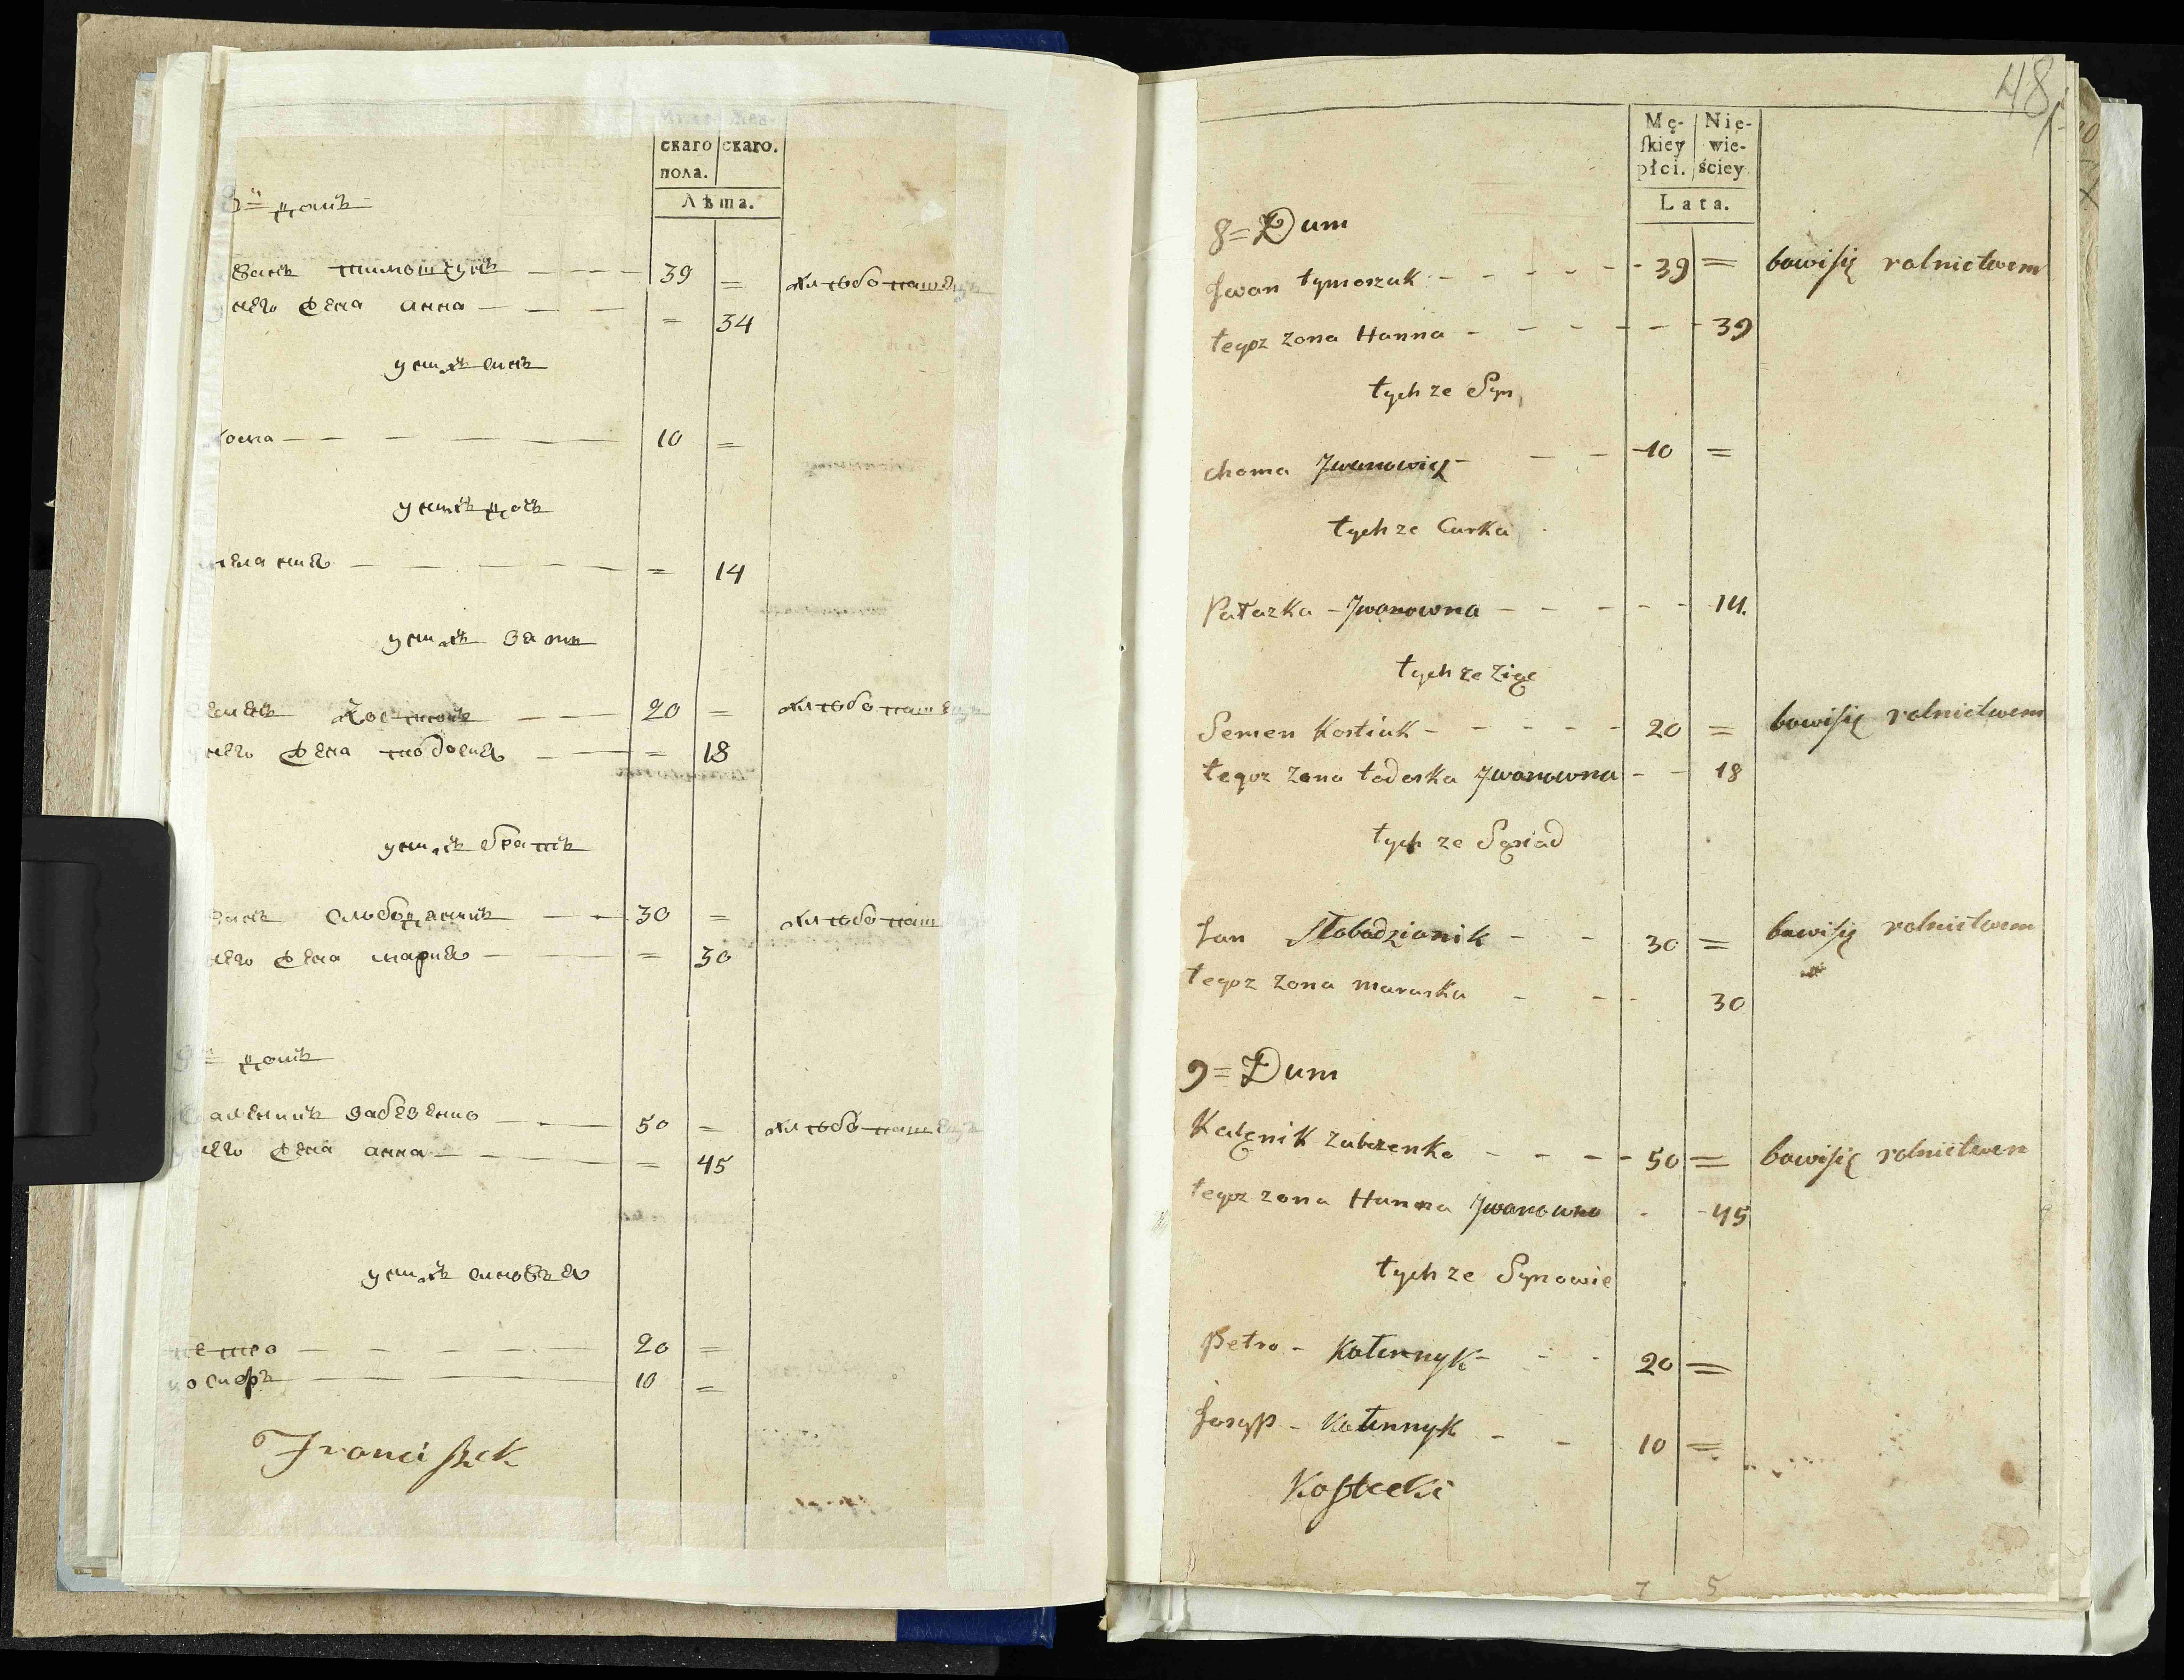 скаго скаго.
пола.
Лѣта.
домъ
тимошчукъ 39 = хлѣбопашецъ
него жена анна = 34
у них синъ
10 =
у них доч
= 14
у них зать
Костюкъ 20 = хлѣбопашецъ
него жена тодосия = 18
у них братъ
слободяникъ 30 = хлѣбопаш
него жена мария = 30
9 = домъ
каленикъ забозенко 50 = хлѣбопашецъ
него жена анна = 45
у них синовья
петро 20 =
иосифъ 10 =
Franciszek
48
Mę- Nie-
skiey wie-
płci. ściey
Lata.
8 = Dum
Iwan tymoszuk 39 = bawisię rolnictwem
tegoz zona Hanna 39
tych ze Syn
choma Iwanowicz 10 =
tych ze Curka
Pałazka - Iwanowna 14.
tych ze Zięć
Semen Kostiuk 20 = bawisię rolnictwem
tegoz zona todoska Iwanowna 18
tych ze Sąsiad
Jan Słobodzianik 30 = bawisię rolnictwem
tegoz zona maruska 30
9 = Dum
Kalęnik zabozenko 50 = bawisię rolnictwem
tegoz zona Hanna Iwanowna 45
tych ze Synowie
Petro - Kalennyk 20 =
Josyp - Kalennyk 10 =
Kostecki
7 5